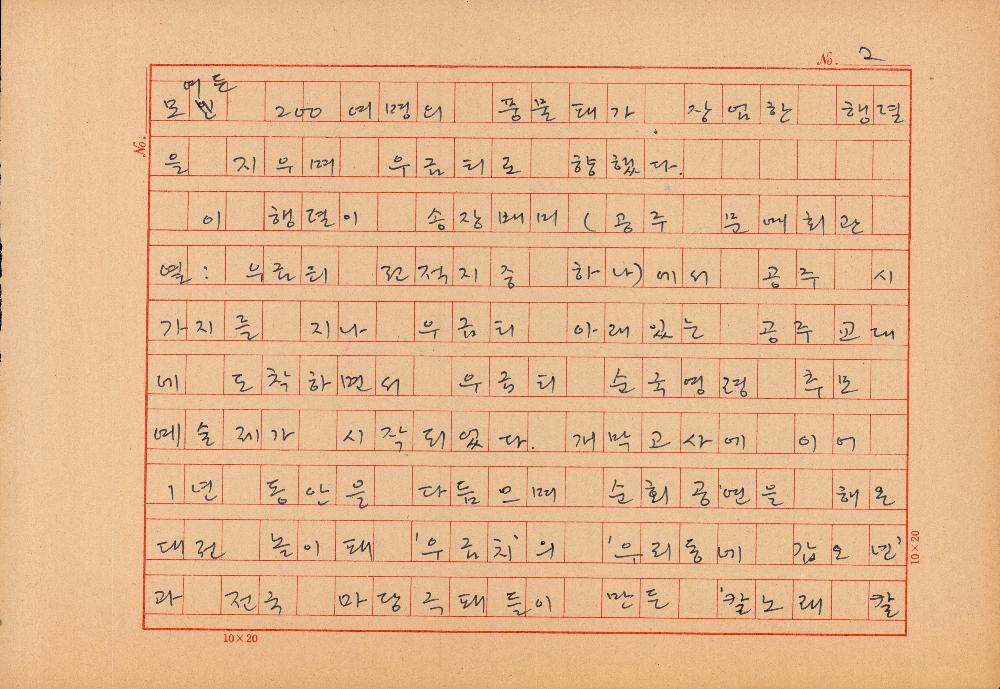 No. 2
여든
모인 200 여명의 풍물패가 장엄한 행렬
을 지우며 우금티로 향했다.
이 행렬이 송장배미 (공주 문예회관
옆: 우금티 전적지중 하나)에서 공주 시
가지를 지나 우금티 아래있는 공주교대
에 도착하면서 우금티 순국영령 추모
예술제가 시작되었다. 개막고사에 이어
1년 동안을 다듬으며 순회공연을 해온
대전 놀이패 '우금치'의 '우리동네 갑오년'
과 전국 마당극패들이 만든 '칼노래 칼
No.
10×20
10×20